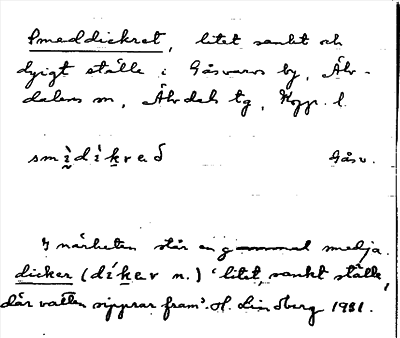 Smeddickret, litet sankt och
dyigt ställe i Gåsvarvs by, Älv-
dalens sn, Älvdals tg, Kopp. l.
smìdíkrað Gåsv.
I närheten står en gammal smedja.
dicker (díker n.) 'litet, sankt ställe,
där vatten sipprar fram'. H. Lindberg 1981.